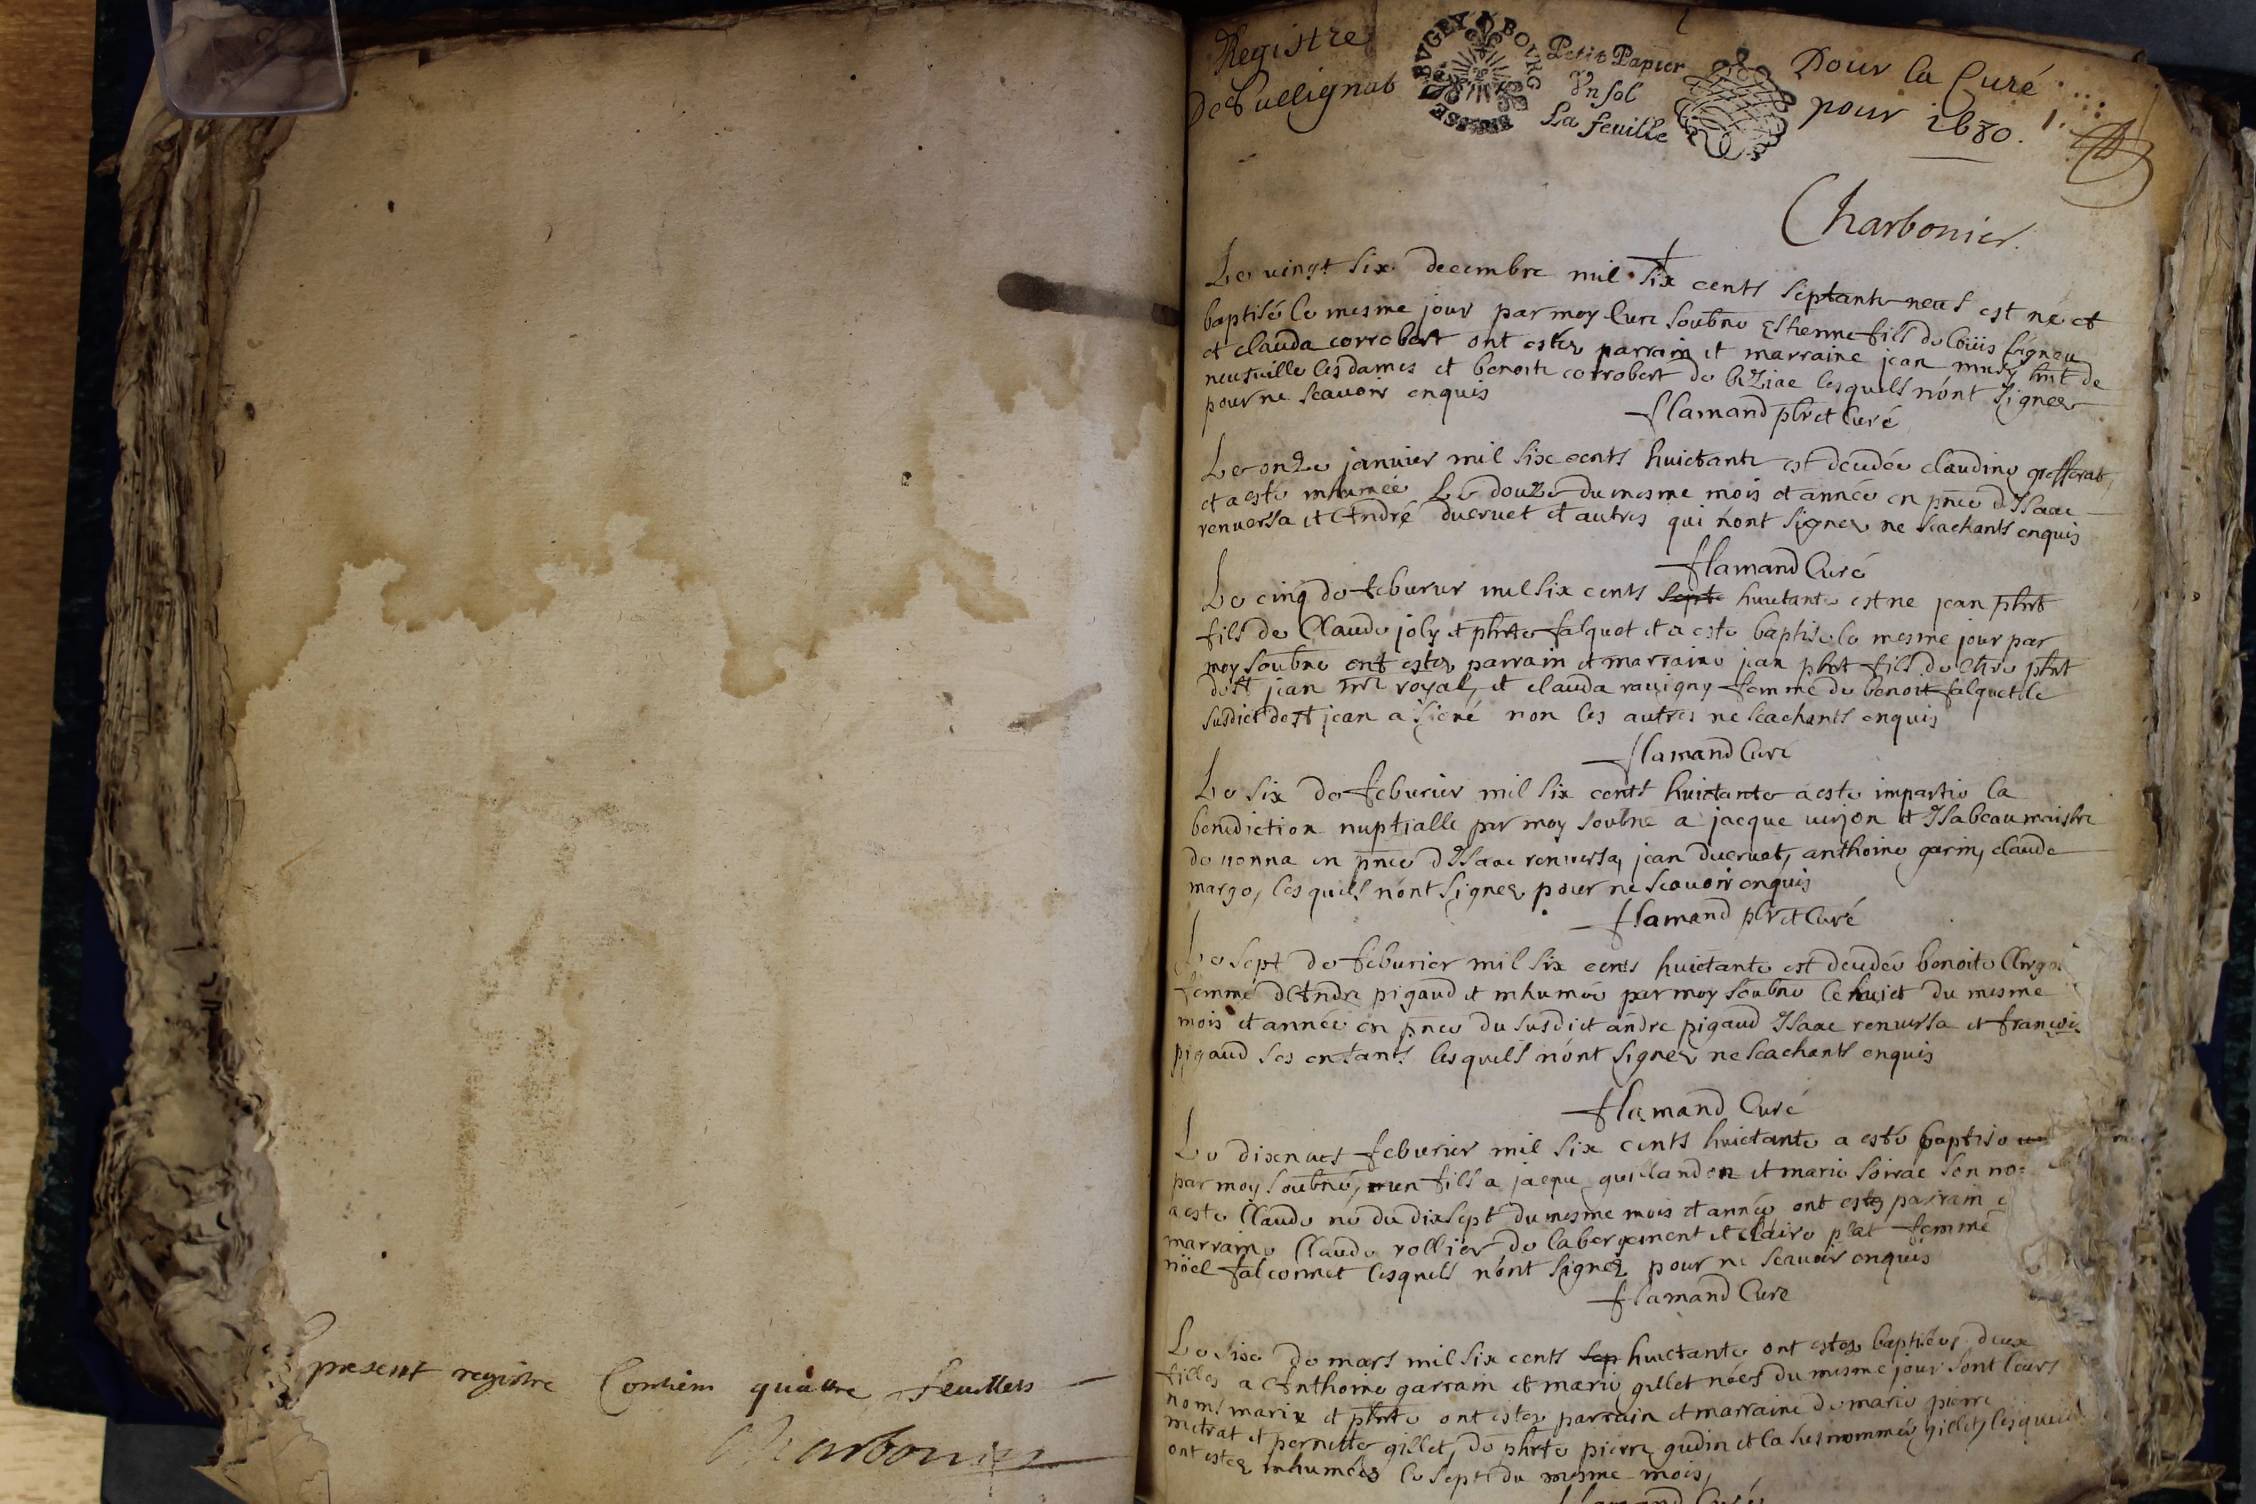 present registre Contient quattre feuillets
Charbonier
Registre
De Tullignat
BVGEY BOVRG BRESSE
Petit Papier
Vn sol
La feuille
Pour la Curé
pour 1680.
1.
Charbonier.
Le vingt six decembre mil six cents septante neuf est né et
baptisé le mesme jour par moy Curé soubné Estienne fils de louis
et clauda corrobert ont estez parrain et marraine jean mury hnt de
neufville les dames et benoite corrobert de biziac lesquels n'ont signer
pour ne scauoir enquis
flamand pbr et Curé
Le onze januier mil six cents huictante est decedée claudine
et a este inhumée Le douze du mesme mois et année en pnce d'Isaac
renuersa et André ducruet et autres qui n'ont signer ne scachants enquis
flamand Curé
Le cinq de feburier mil six cents septe huictante est ne jean phrt
fils de Claude joly et phrte falquet et a este baptise le mesme jour par
moy soubné ont estez parrain et marraine jean phrt fils de phrt
de st jean royal, et clauda rauigny femme de benoit falquet le
susdict de st jean a signé non les autres ne scachants enquis
flamand Curé
Le six de feburier mil six cents huictante a este impartie la
benediction nuptialle par moy soubné a jacque uirjon et Isabeau maistre
de uonna en pnce d'Isaac renuersa, jean ducruet, anthoine garin, claude
margo, lesquels n'ont signez pour ne scauoir enquis
flamand pbr et Curé
Le sept de feburier mil six cents huictante est decedée benoite
femme d'Andre pigaud et inhumée par moy soubné le huict du mesme
mois et année en pnce du susdict andre pigaud Isaac renuersa et francois
pigaud ses enfants lesquels n'ont signez ne scachants enquis
flamand Curé
Le dixneuf feburier mil six cents huictante a esté baptisé
par moy soubné, un fils a jacque guillandon et marie soirac son no=
a este Claude né du dixsept du mesme mois et année ont estez parrain e
marraine Claude rollier de labergement et claire plat femme
nöel falconnet lesquels n'ont signez pour ne scauoir enquis
flamand Curé
Le six de mars mil six cents sep huictante ont estez baptisées deux
filles a Anthoine garrain et marie gillet nées du mesme jour sont leurs
noms marie et phrte ont estez parrain et marraine de marie pierre
metrat et pernette gillet, de phrte pierre gudin et la susnommée gillet, lesquels
ont estez inhumées le sept du mesme mois,
flamand Curé